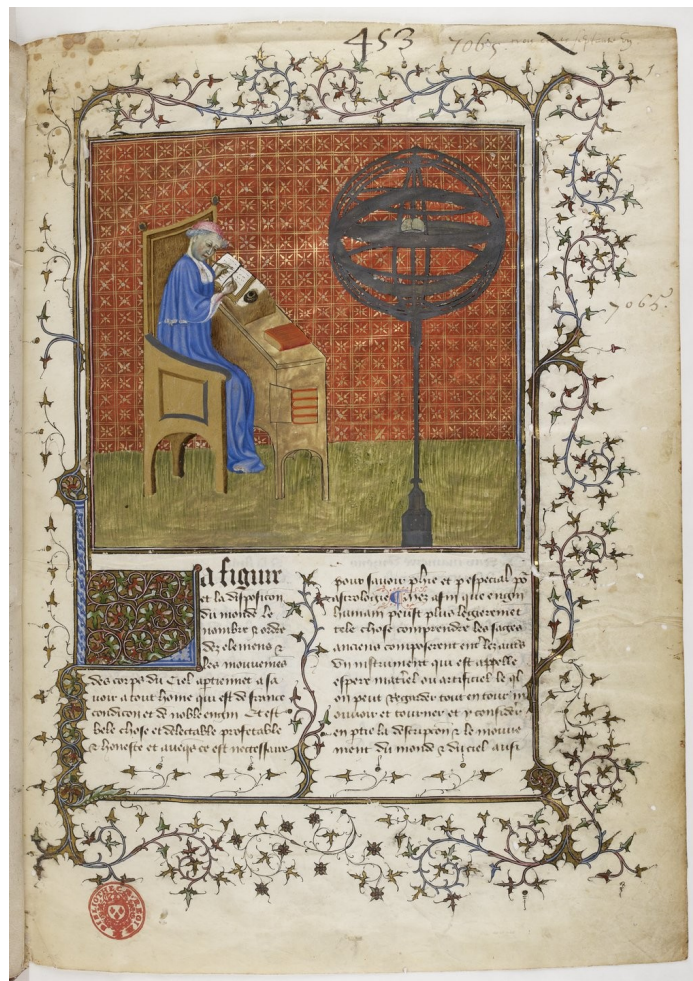 453
7065
1.
7065.
La figure
et la disposicon
du monde le
nombre & ordre
dez elemens &
les mouvemēs
des corps du ciel aptiennet a sa
uoir a tout hōme qui est de france
condicon et de noble engin Et est
bele chose et delectable profetable
& honeste et auecqs ce est necessaire
pour sauoir phīe et p especial po
astrologie
humain peust plus legeremēt
tele chose comprendre les sages
anciens composerent ent les auts
un instrument qui est appelle
espere materiel ou artificiel le ql
on peut regarder tout entour m
ouuoir et tourner et y considerer
en ptie la descripcion & le mouue
ment du monde & du ciel ausi
BIBLIOTHECAE REGIAE